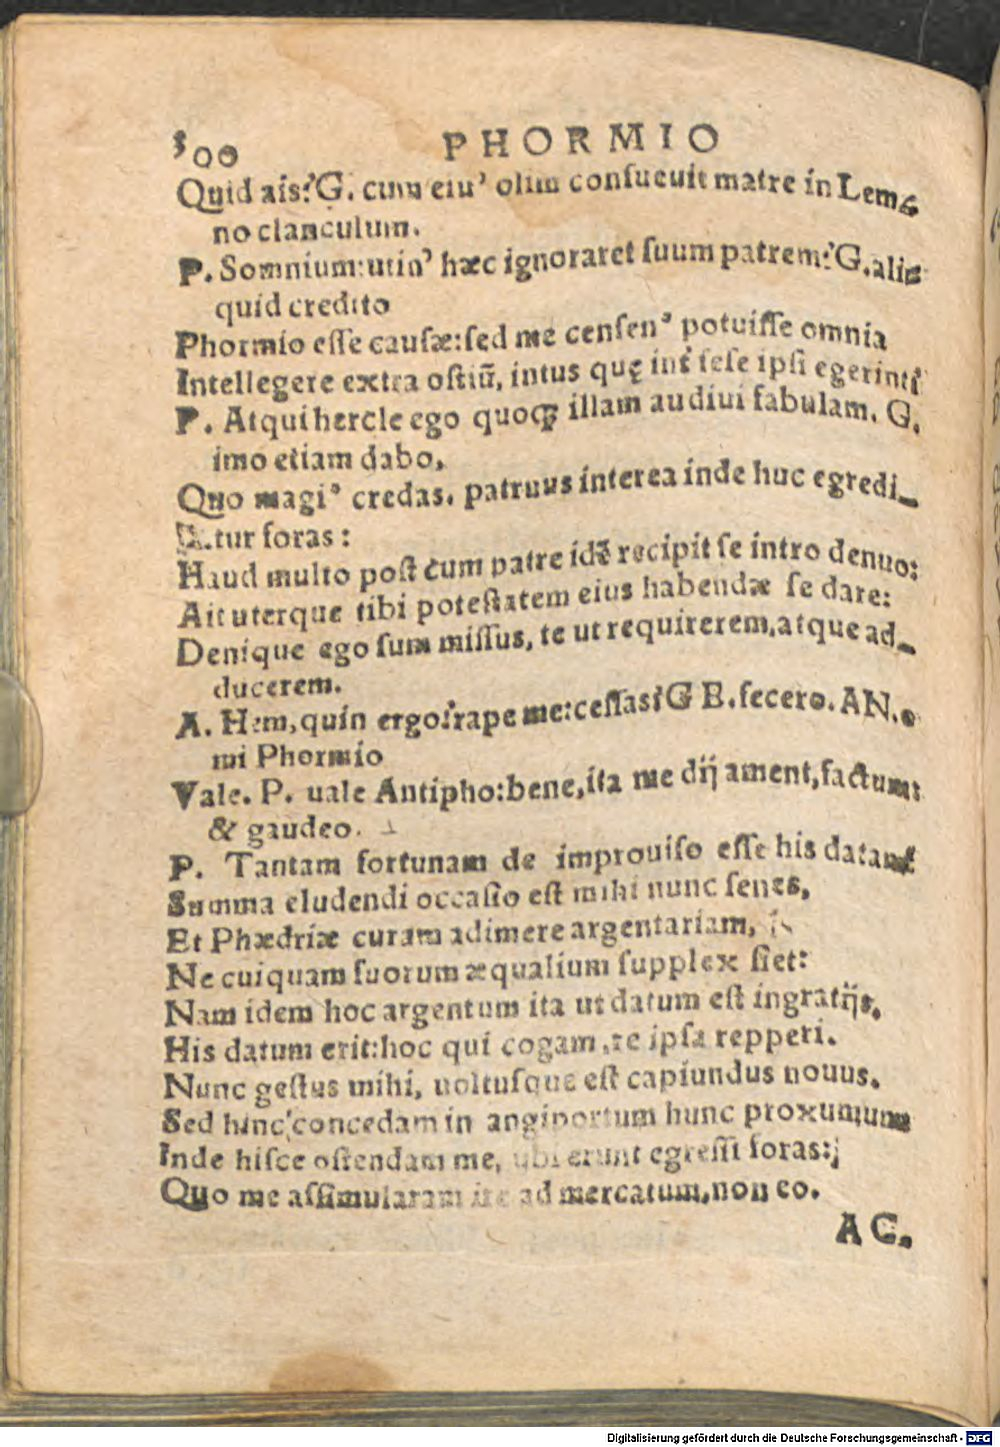 300 PHORMIO
Quid ais? G. cum eiu' olim consueuit matre in Lem-
no clanculum.
P. Somnium: utin' hæc ignoraret suum patrem? G. ali-
quid credito
Phormio esse causæ: sed me censen' potuisse omnia
Intellegere extra ostiũ, intus quę int' sese ipsi egerint?
P. Atqui hercle ego quoq; illam audiui fabulam. G.
imo etiam dabo,
Quo magi' credas. patruus interea inde huc egredi-
tur foras:
Haud multo post cum patre idẽ recipit se intro denuo:
Ait uterque tibi potestatem eius habendæ se dare:
Denique ego sum missus, te ut requirerem, atque ad-
ducerem.
A. Hem, quin ergo? rape me: cessas? GE. fecero. AN. o
mi Phormio
Vale. P. uale Antipho: bene, ita me dij ament, factum:
& gaudeo.
P. Tantam fortunam de improuiso esse his datam?
Summa eludendi occasio est mihi nunc senes,
Et Phædriæ curam adimere argentariam,
Ne cuiquam suorum æqualium supplex siet:
Nam idem hoc argentum ita ut datum est ingratijs,
His datum erit: hoc qui cogam, re ipsa repperi.
Nunc gestus mihi, uoltusque est capiundus nouus.
Sed hinc concedam in angiportum hunc proxumum
Inde hisce ostendam me, ubi erunt egressi foras:
Quo me assimularam ire ad mercatum, non eo.
AC.
Digitalisierung gefördert durch die Deutsche Forschungsgemeinschaft - DFG